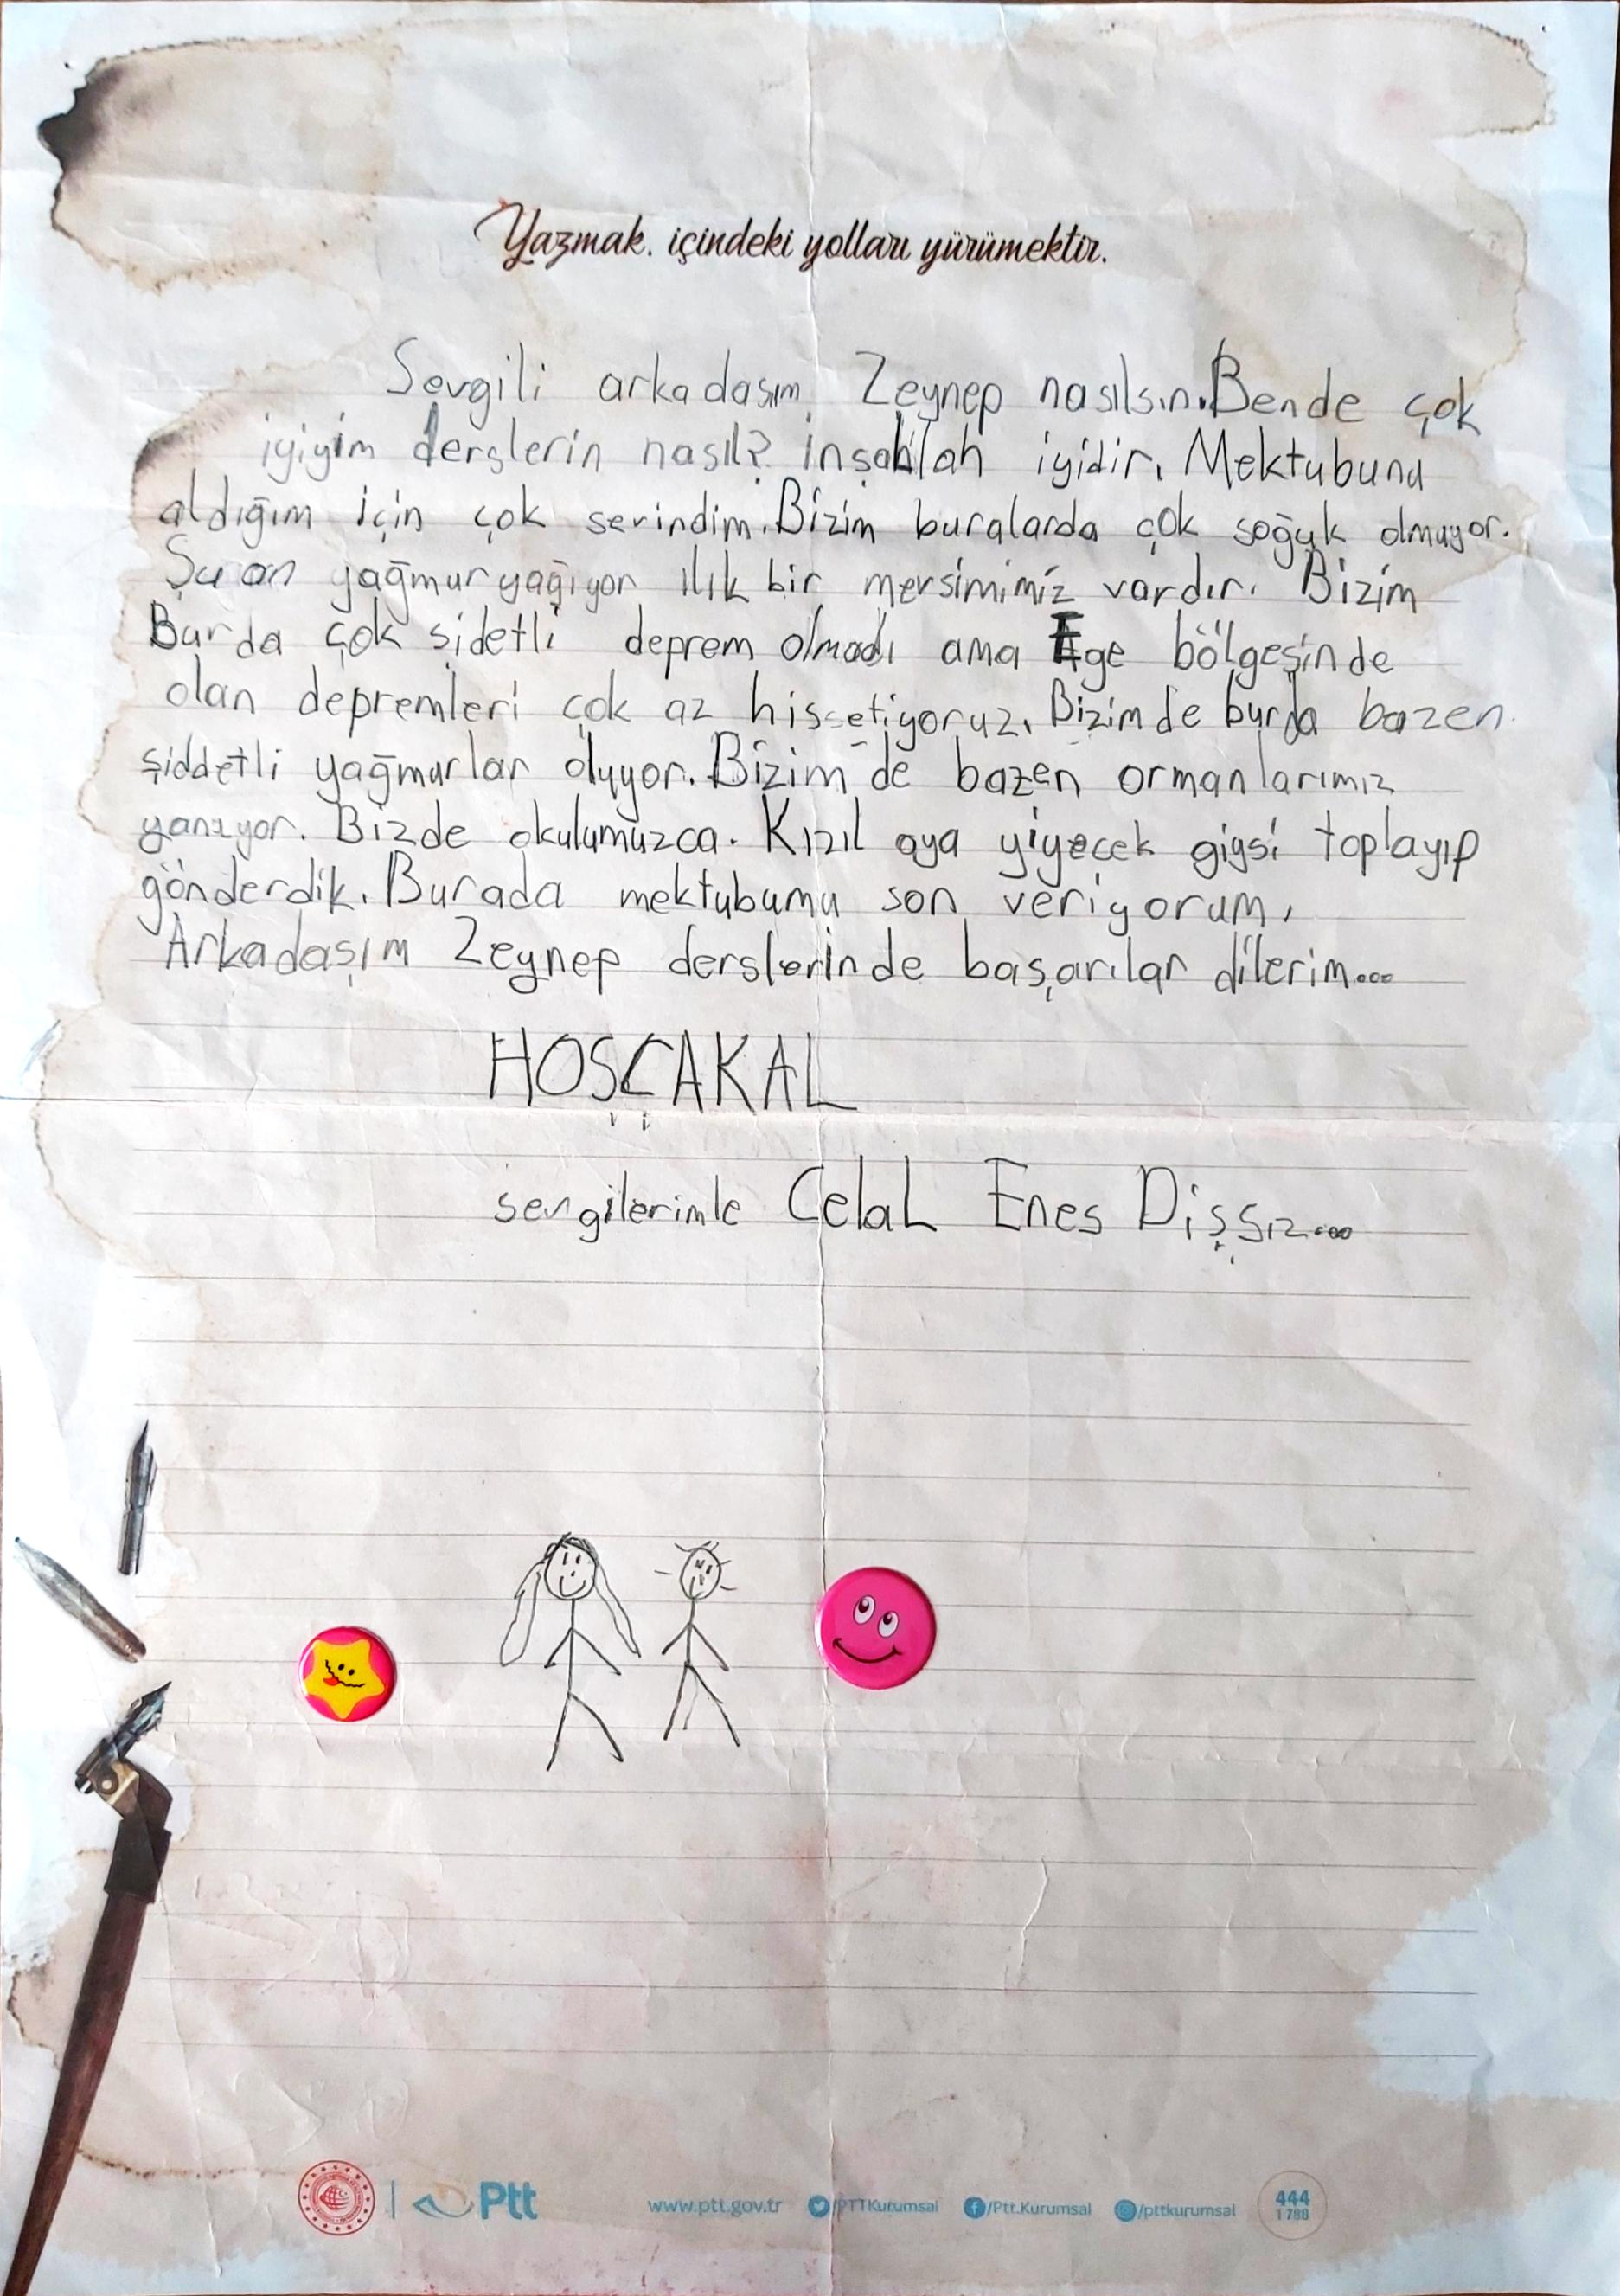 Yazmak. içindeki yolları yürümektir.
Sevgili arkadaşım Zeynep nasılsın. Bende çok
iyiyim derslerin nasıl? inşahlah iyidir. Mektubunu
aldığım için çok sevindim. Bizim buralarda çok soğuk olmuyor.
Şu an yağmur yağıyor ılık bir mevsimimiz vardır. Bizim
Burda çok şidetli deprem olmadı ama Ege bölgesinde
olan depremleri çok az hissetiyoruz. Bizimde burda bazen
şiddetli yağmurlar oluyor. Bizim de bazen ormanlarımız
yanıyor. Bizde okulumuzca. Kızıl aya yiyecek giysi toplayıp
gönderdik. Burada mektubumu son veriyorum,
Arkadaşım Zeynep derslerinde başarılar dilerim...
HOŞÇAKAL
sevgilerimle Celal Enes Dişsiz...
Ptt
www.ptt.gov.tr /PTTKurumsal /Ptt.Kurumsal /pttkurumsal
444
1 788